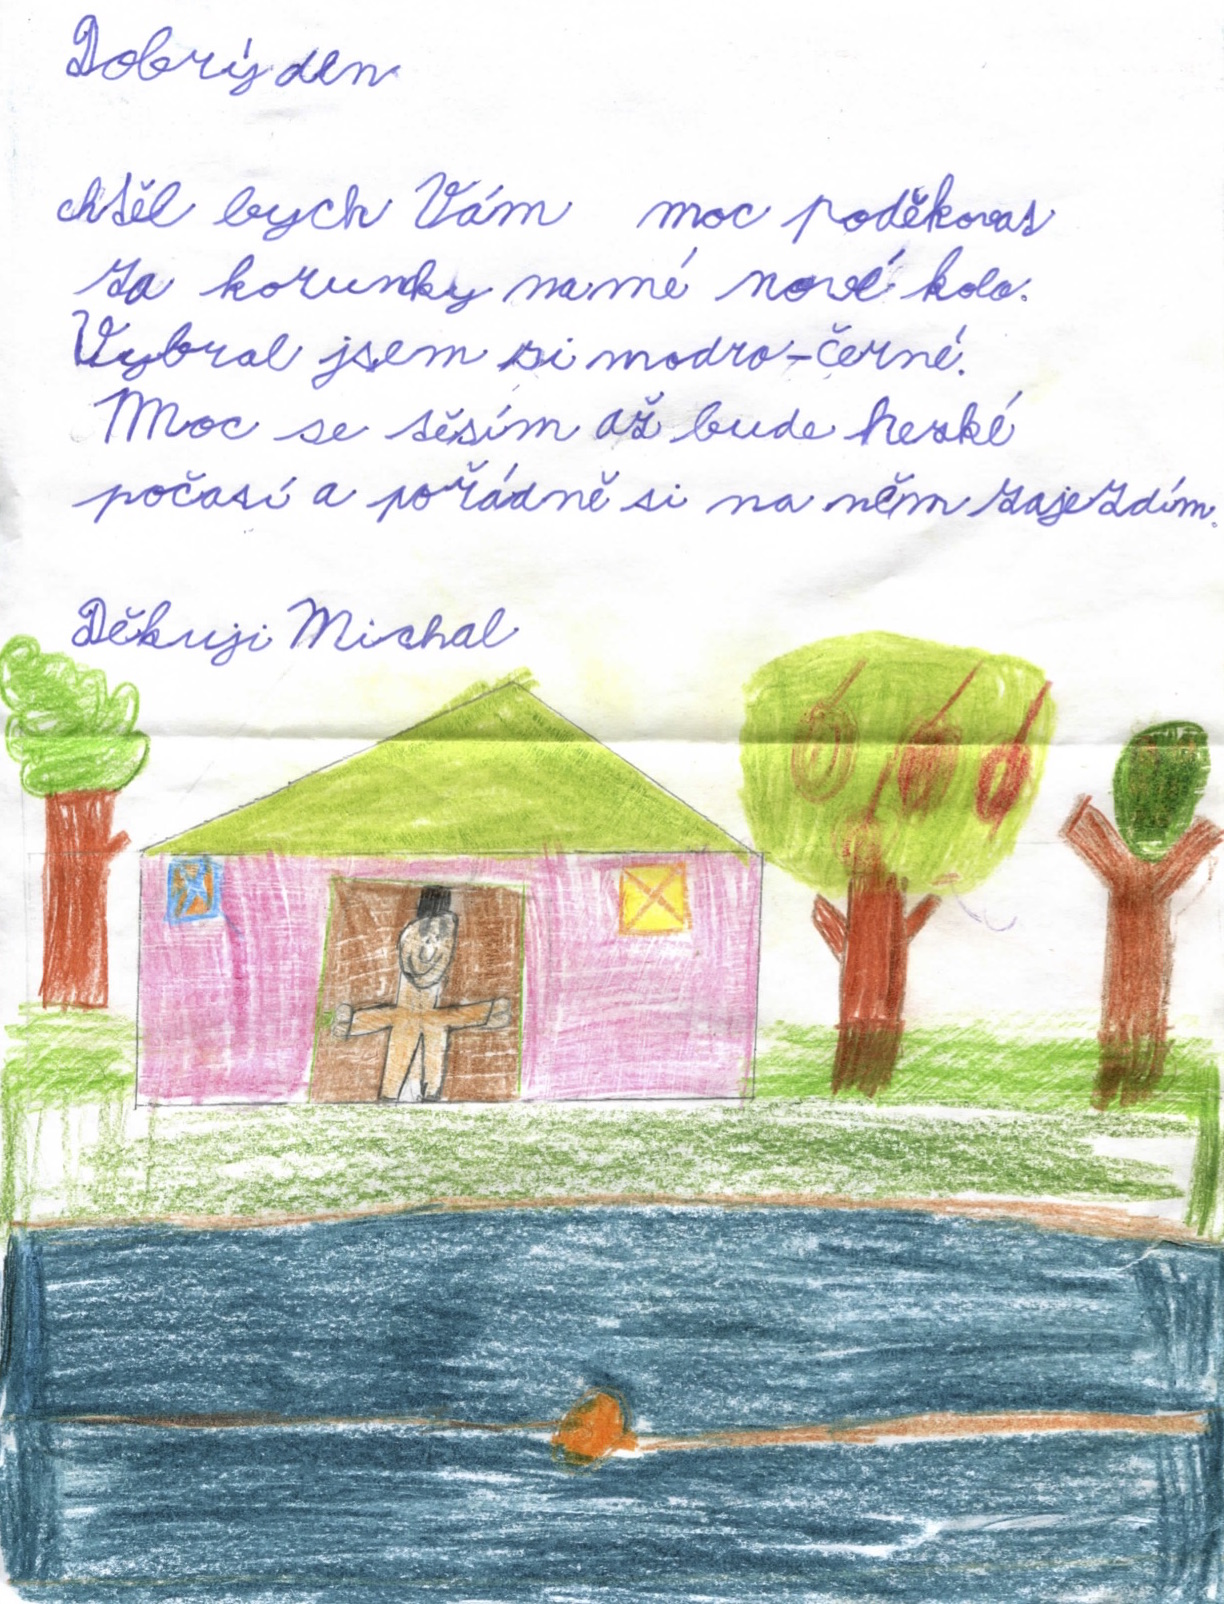 Dobrý den
chtěl bych Vám moc poděkovat
za korunky na mé nové kolo.
Vybral jsem si modro-černé.
Moc se těším až bude heské
počasí a pořádně si na něm zajezdím.
Děkuji Michal